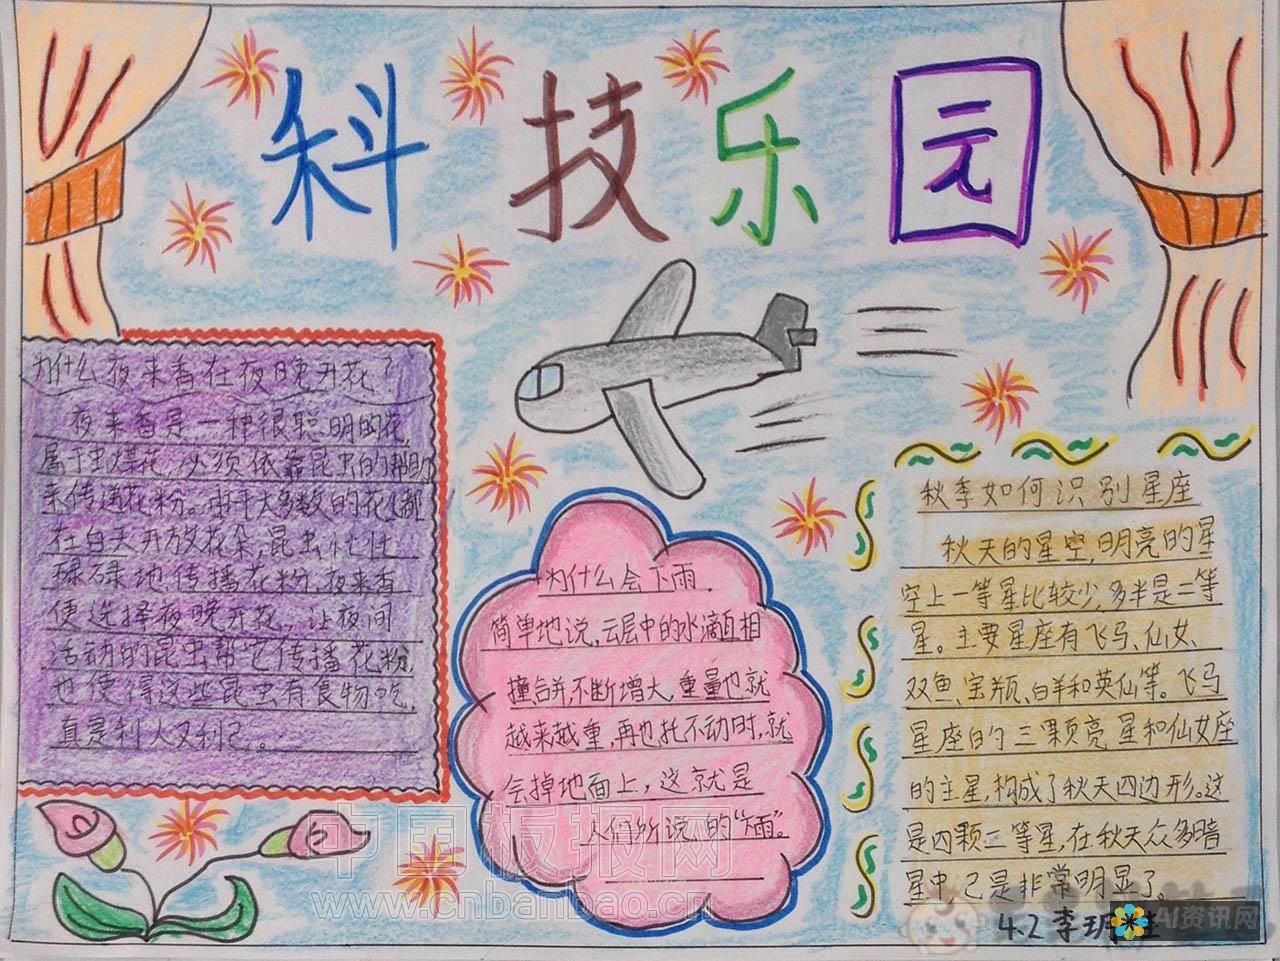 科技乐园
为什么夜来香在夜晚开花?
夜来香是一种很聪明的花,
属于虫媒花,必须依靠昆虫的帮助
来传递花粉。由于大多数的花都
在白天开放花朵,昆虫忙忙
碌碌地传播花粉,夜来香
便选择夜晚开花,让夜间
活动的昆虫帮它传播花粉,
也使得这些昆虫有食物吃,
真是利人又利己。
为什么会下雨.
简单地说,云层中的水滴互相
撞合并,不断增大,重量也就
越来越重,再也托不动时,就
会掉地面上,这就是
人们所说的“大雨”。
秋季如何识别星座
秋天的星空,明亮的星
空上一等星比较少,多半是二等
星。主要星座有飞马、仙女、
双鱼、宝瓶、白羊和英仙等。飞马
星座的三颗亮星和仙女座
的主星,构成了秋天四边形。这
是四颗二等星,在秋天众多暗
星中,已是非常明显了。
4.2 李玥
中国板报网
www.cnbanbao.cn
AI资讯网